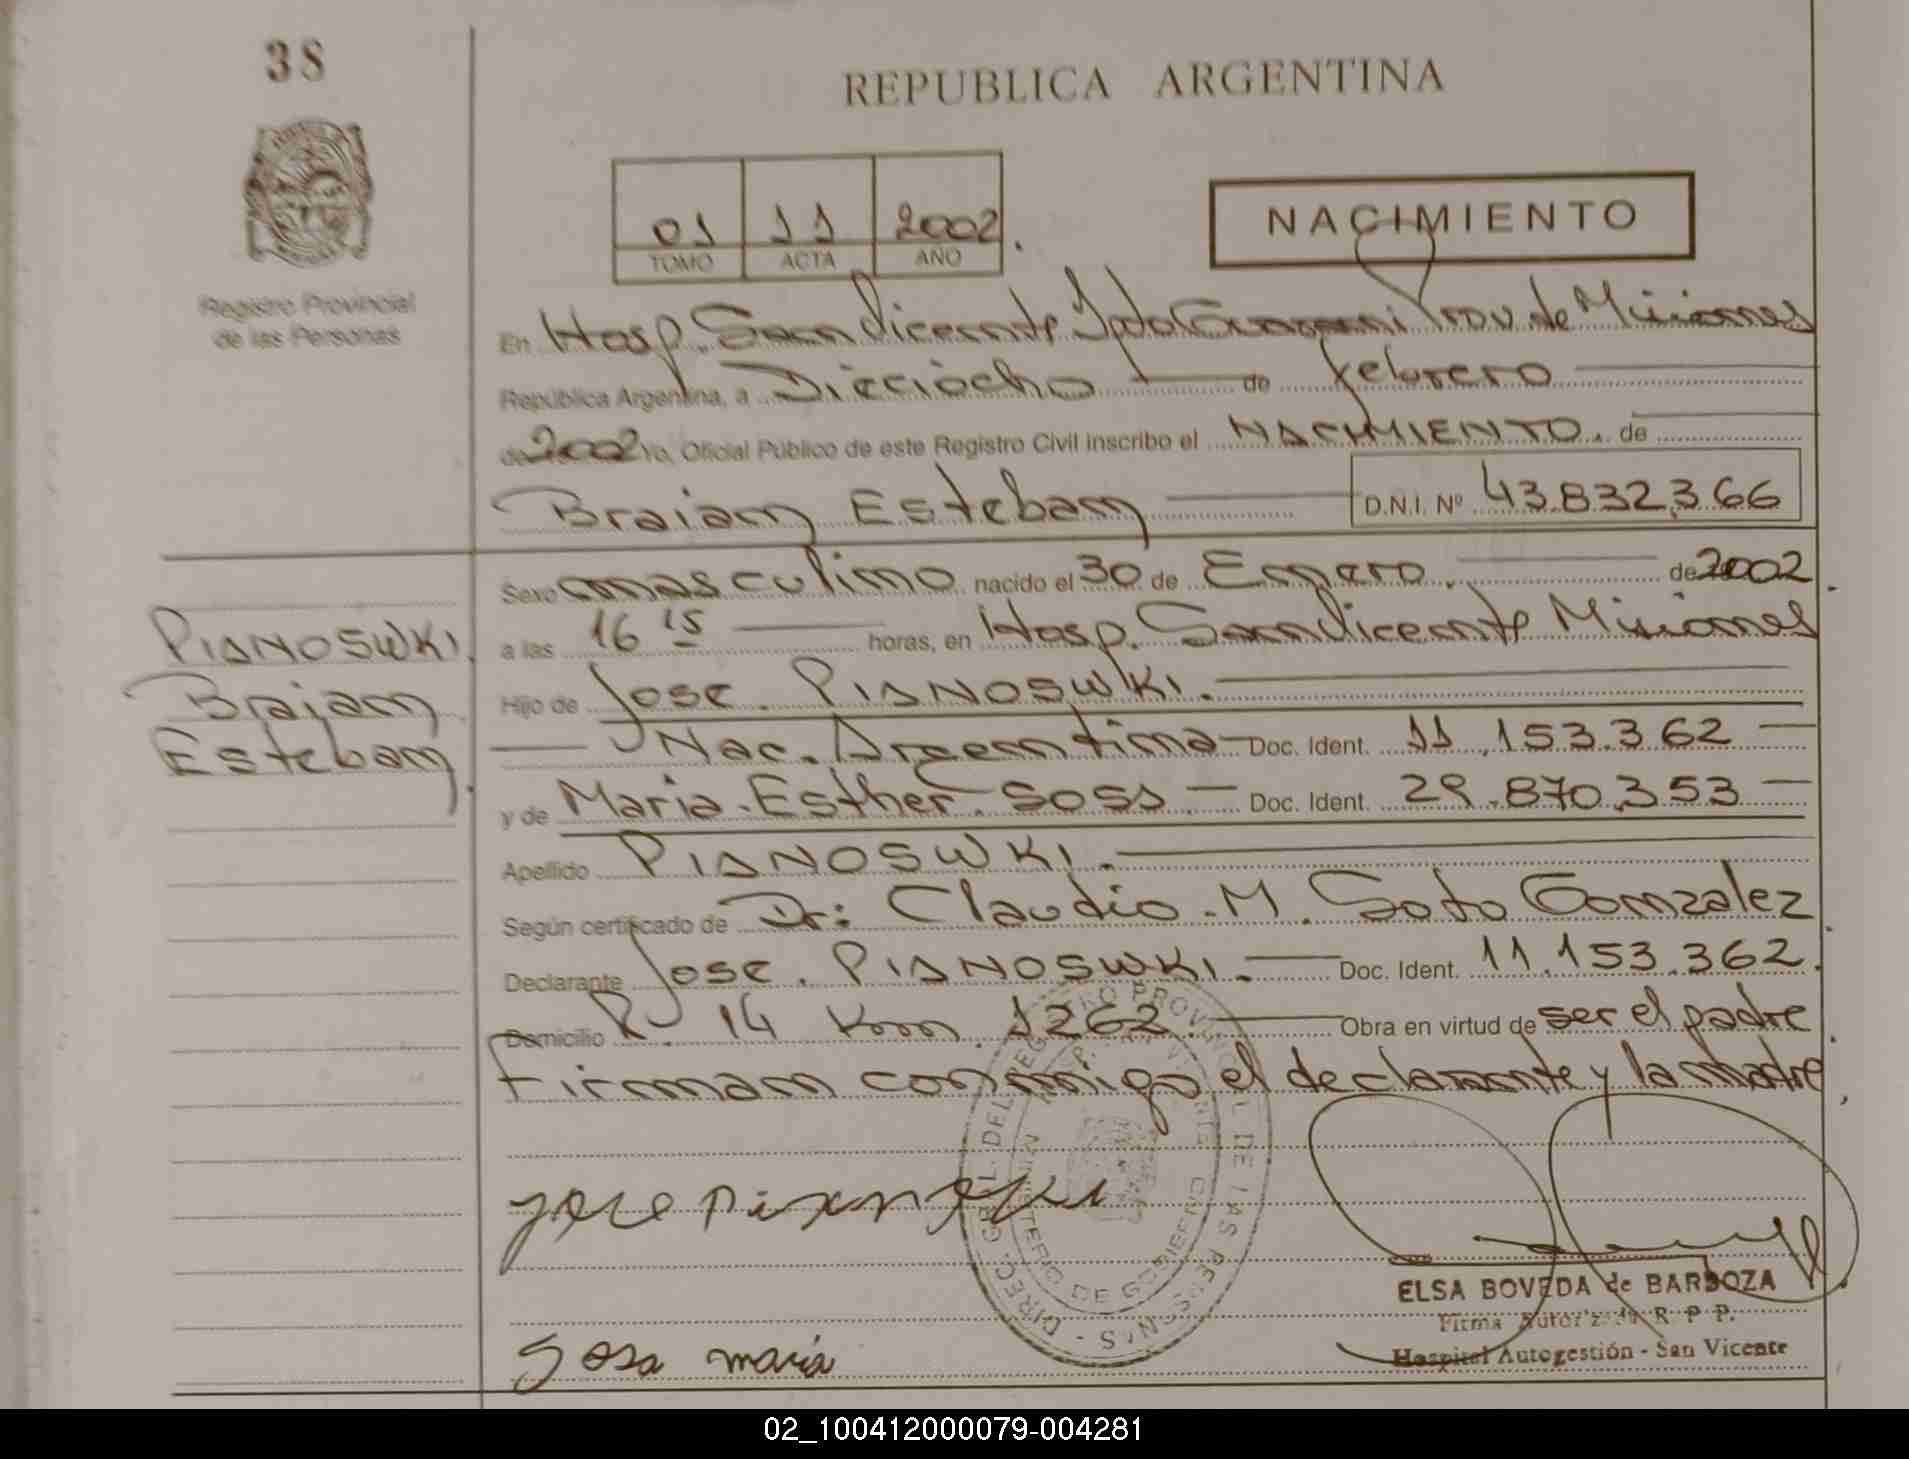 38
REPUBLICA ARGENTINA
01 11 2002.
TOMO ACTA AÑO
NACIMIENTO
Registro Provincial
de las Personas
En Hosp. San Vicente Dpto Guarani Prov. de Misiones
República Argentina, a Dieciocho de febrero
de 2002 Yo, Oficial Público de este Registro Civil inscribo el NACIMIENTO. de
Braian Esteban D.N.I. Nº 43.832.366
Sexo masculino nacido el 30 de Enero. de 2002.
a las 16 15 horas, en Hosp. San Vicente Misiones
Hijo de Jose. PIANOSWKI.
Nac. Argentina Doc. Ident. 11.153.362
y de Maria Esther SOSA. Doc. Ident. 29.870.353
Apellido PIANOSWKI.
Según certificado de Dr: Claudio M. Soto Gonzalez.
Declarante Jose. PIANOSWKI. Doc. Ident. 11.153.362.
Domicilio R. 14 Km. 1262. Obra en virtud de ser el padre.
Firman conmigo el declarante y la madre,
PIANOSWKI,
Braian
Esteban.
DIREC. GRAL. DEL REGISTRO PROVINCIAL DE LAS PERSONAS -
MINISTERIO DE GOBIERNO
Sosa maria
ELSA BOVEDA de BARBOZA
Firma Autorizada R. P. P.
Hospital Autogestión - San Vicente
02_100412000079-004281